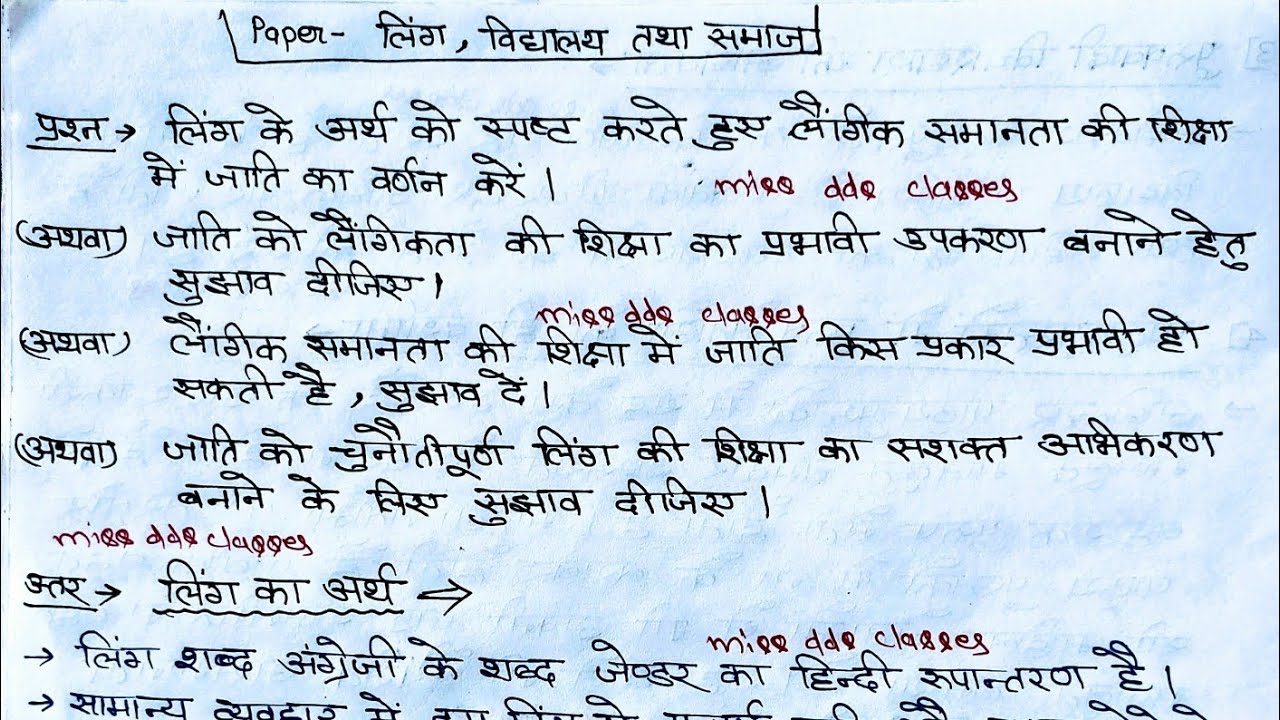 Paper - लिंग, विद्यालय तथा समाज
प्रश्न → लिंग के अर्थ को स्पष्ट करते हुए लैंगिक समानता की शिक्षा
में जाति का वर्णन करें।
miss dds classes
(अथवा) जाति को लैंगिकता की शिक्षा का प्रभावी उपकरण बनाने हेतु
सुझाव दीजिए।
miss dds classes
(अथवा) लैंगिक समानता की शिक्षा में जाति किस प्रकार प्रभावी हो
सकती है, सुझाव दें।
(अथवा) जाति को चुनौतीपूर्ण लिंग की शिक्षा का सशक्त अभिकरण
बनाने के लिए सुझाव दीजिए।
miss dds classes
उत्तर → लिंग का अर्थ →
miss dds classes
→ लिंग शब्द अंग्रेजी के शब्द जेण्डर का हिन्दी रूपान्तरण है।
→ सामान्य व्यवहार में